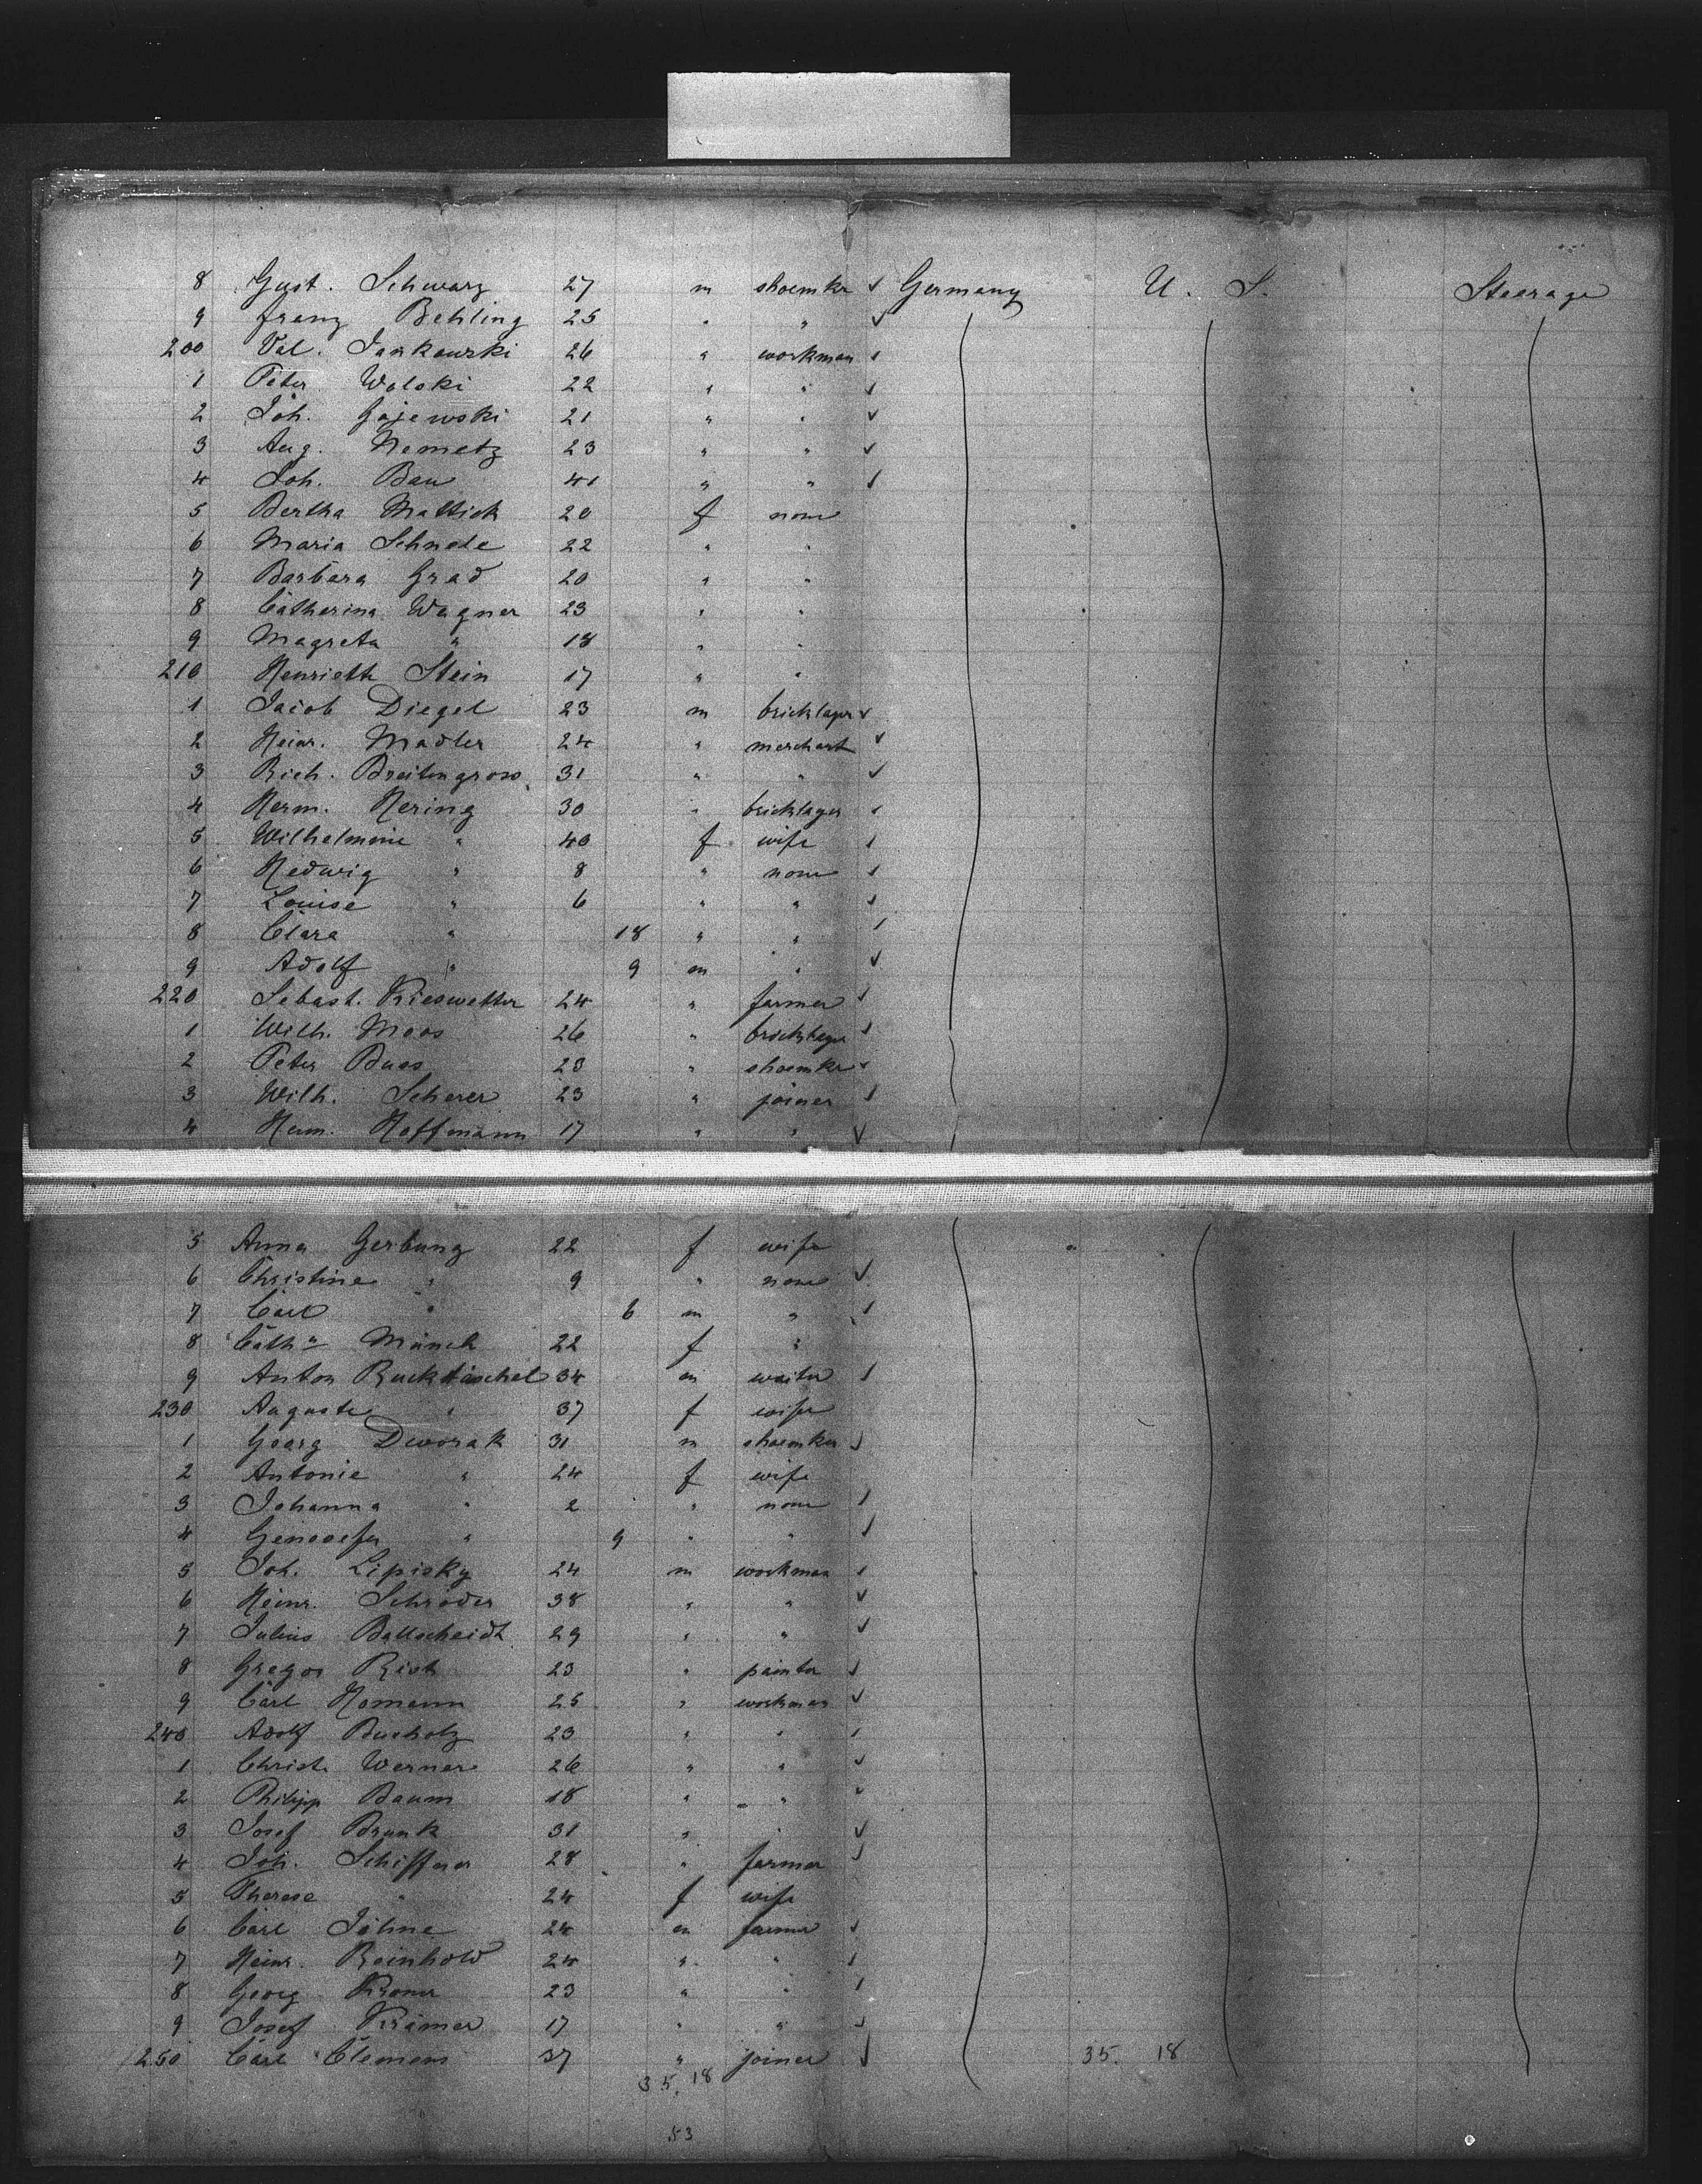 8 Gust. Schwarz 27 m shoemkr ✓ Germany U. S. Steerage
9 Franz Behling 25 " " ✓
200 Val. Jankowski 26 " workman ✓
1 Peter Walski 22 " " ✓
2 Joh. Gajewski 21 " " ✓
3 Aug. Nemetz 23 " " ✓
4 Joh. Bau 41 " " ✓
5 Bertha Mattick 20 f none
6 Maria Schnede 22 " "
7 Barbara Grad 20 " "
8 Catherina Wagner 23 " "
9 Magreta " 18 " "
210 Henrieth Stein 17 " "
1 Jacob Diegel 23 m bricklayr ✓
2 Heinr. Madler 24 " merchant ✓
3 Rich. Breitengross 31 " " ✓
4 Herm. Hering 30 " bricklayer ✓
5 Wilhelmine " 40 f wife ✓
6 Hedwig " 8 " none ✓
7 Louise " 6 " " ✓
8 Clara " 18 " " ✓
9 Adolf " 9 m " ✓
220 Sebast. Kieswetter 24 " farmer ✓
1 Wilh. Moos 26 " bricklayer ✓
2 Peter Buss 23 " shoemkr ✓
3 Wilh. Scherer 23 " joiner ✓
4 Herm. Hoffmann 17 " " ✓
5 Anna Gerbung 22 f wife
6 Christine " 9 " none ✓
7 Carl " 6 m " ✓
8 Cath.a Münch 22 f "
9 Anton Ruckdäschel 34 m waiter ✓
230 Auguste " 37 f wife
1 Georg Dworak 31 m shoemker ✓
2 Antonie " 24 f wife
3 Johanna " 2 " none ✓
4 Genovefa " 9 " " ✓
5 Joh. Lipisky 24 m workman ✓
6 Heinr. Schröder 38 " " ✓
7 Julius Ballscheidt 29 " " ✓
8 Gregor 23 " painter ✓
9 Carl Homann 25 " workman ✓
240 Adolf Bucholz 23 " " ✓
1 Christ. Werner 26 " " ✓
2 Philipp Baum 18 " " ✓
3 Josef Brunk 31 " " ✓
4 Joh. Schifferer 28 " farmer ✓
5 Therese " 24 f wife
6 Carl Jähne 24 m farmer ✓
7 Heinr. Reinhold 24 " " ✓
8 Georg Kroner 23 " " ✓
9 Josef Krämer 17 " " ✓
250 Carl Clemens 37 " joiner ✓ 35. 18
35. 18
53